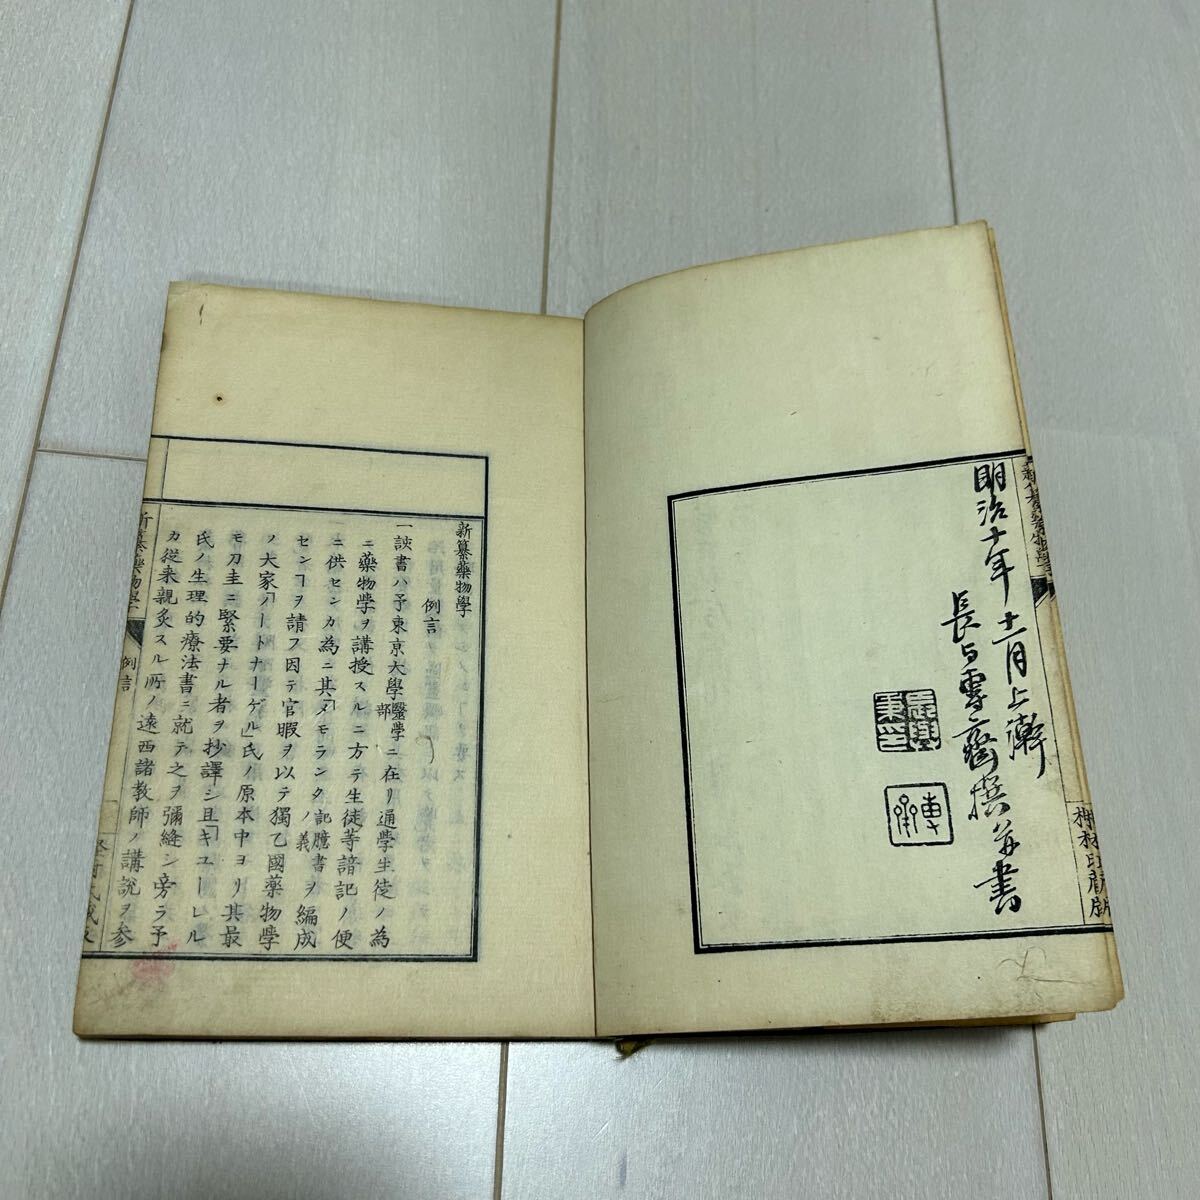 明治十年十一月上澣
長与專齋撰并書
新纂藥物學
例言
一該書ハ予東京大學醫學部ニ在リ通學生徒ノ為
ニ藥物學ヲ講授スルニ方テ生徒等諳記ノ便
ニ供センカ為ニ其「メモランダ」記臆書ノ義ヲ編成
センヿヲ請フ因テ官暇ヲ以テ獨乙國藥物學
ノ大家「ノートナーゲル」氏ノ原本中ヨリ其最
モ刀圭ニ緊要ナル者ヲ抄譯シ且「キユーレル
氏ノ生理的療法書ニ就テ之ヲ彌縫シ旁ラ予
カ從来親炙スル所ノ遠西諸教師ノ講說ヲ参
新纂藥物學
例言